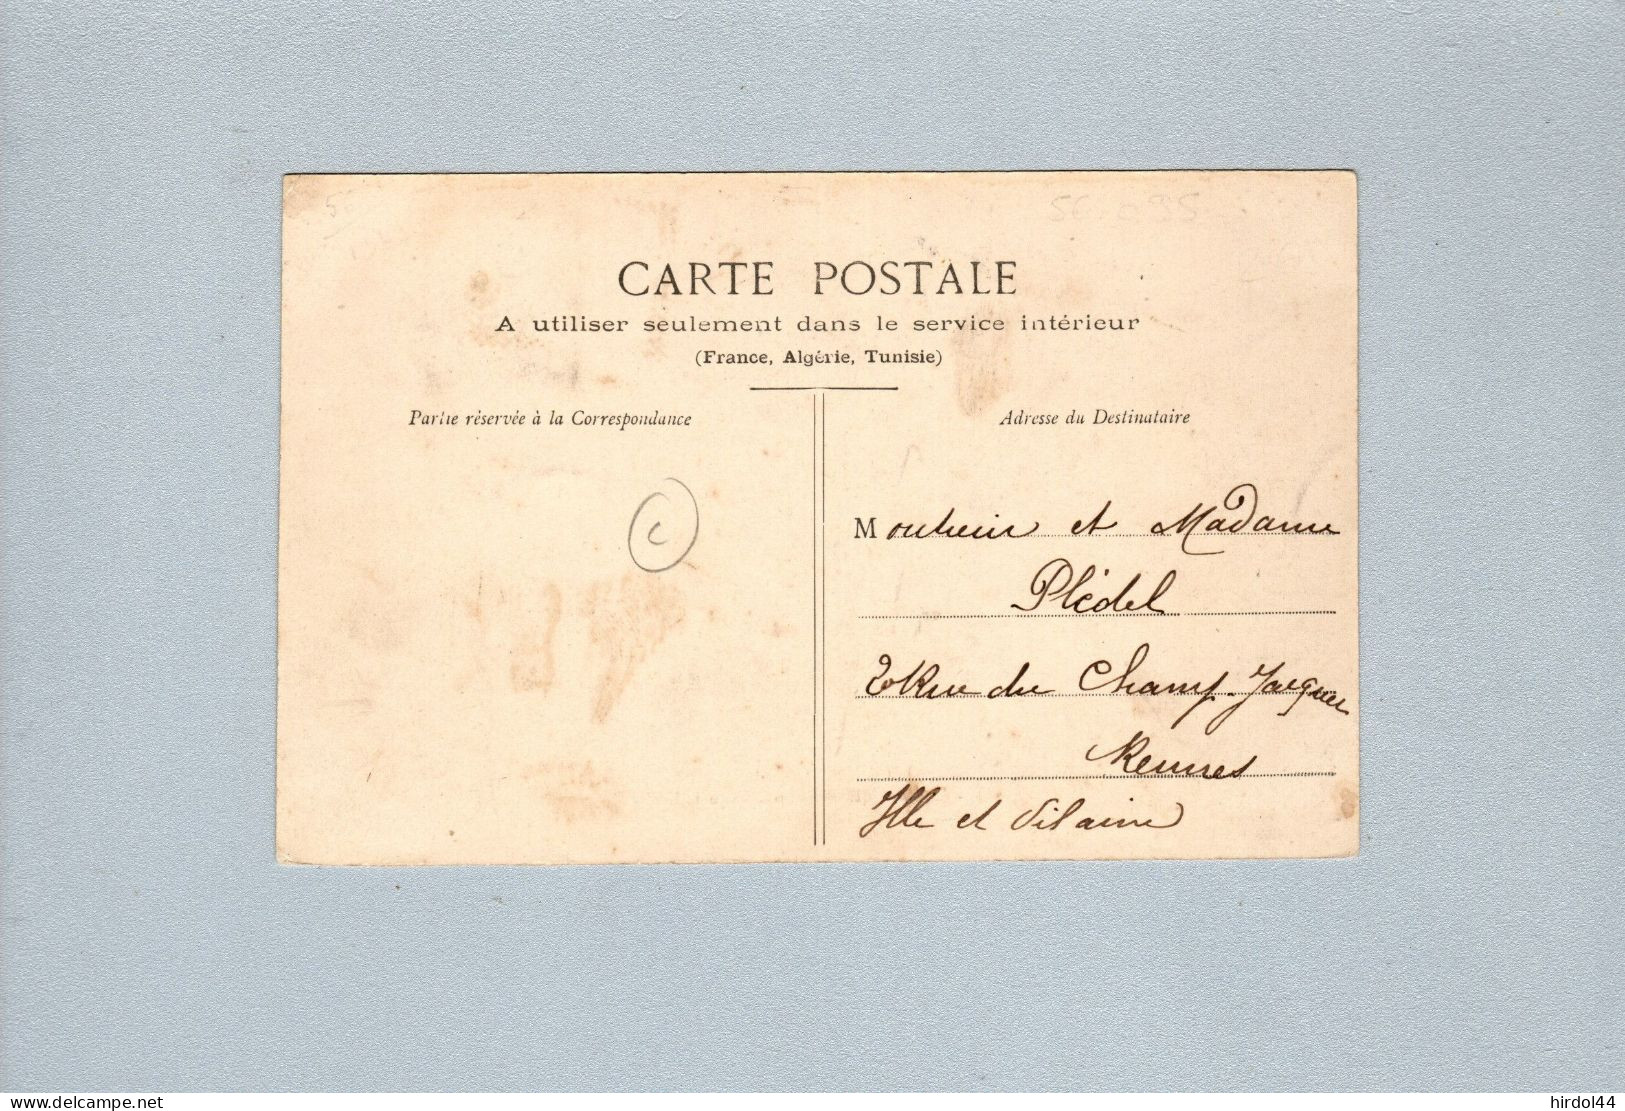 CARTE POSTALE
A utiliser seulement dans le service intérieur
(France, Algérie, Tunisie)
Partie réservée à la Correspondance
Adresse du Destinataire
c
Monsieur et Madame
Plédel
2 Rue du Champ-Jacquet
Rennes
Ille et Vilaine
www.delcampe.net
hirdol44